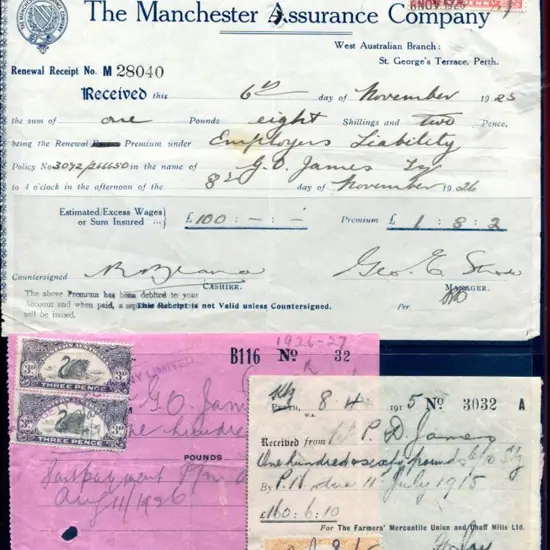 The Manchester Assurance Company
6 NOV 1925
PENNY
West Australian Branch:
St. George's Terrace, Perth.
Renewal Receipt No. M 28040
Received this 6th day of November 1925
the sum of one Pounds eight Shillings and two Pence,
being the Renewal Premium under Employers Liability
Policy No 3072/266650 in the name of G. O. James Esq
to 4 o'clock in the afternoon of the 8th day of November 1926
Estimated/Excess Wages
or Sum Insured
£100 : - : -
Premium £ 1 : 8 : 2
Countersigned
CASHIER.
Geo. E.
MANAGER.
The above Premium has been debited to your
Account and when paid, a
will be issued.
This Receipt is not Valid unless Countersigned.
Per
THREE PENCE
THREE PENCE
LIMITED
1926-27
B116 No 32
G. O. James
one hundred
POUNDS
Part payment
Aug 11/1926
PERTH, 8 - 4 1915 No 3032 A
W.A.
Received from P. D. James
One hundred & sixty pounds 6/10
By P. Note due 11 July 1915
£160:6:10
For The Farmers' Mercantile Union and Chaff Mills Ltd.